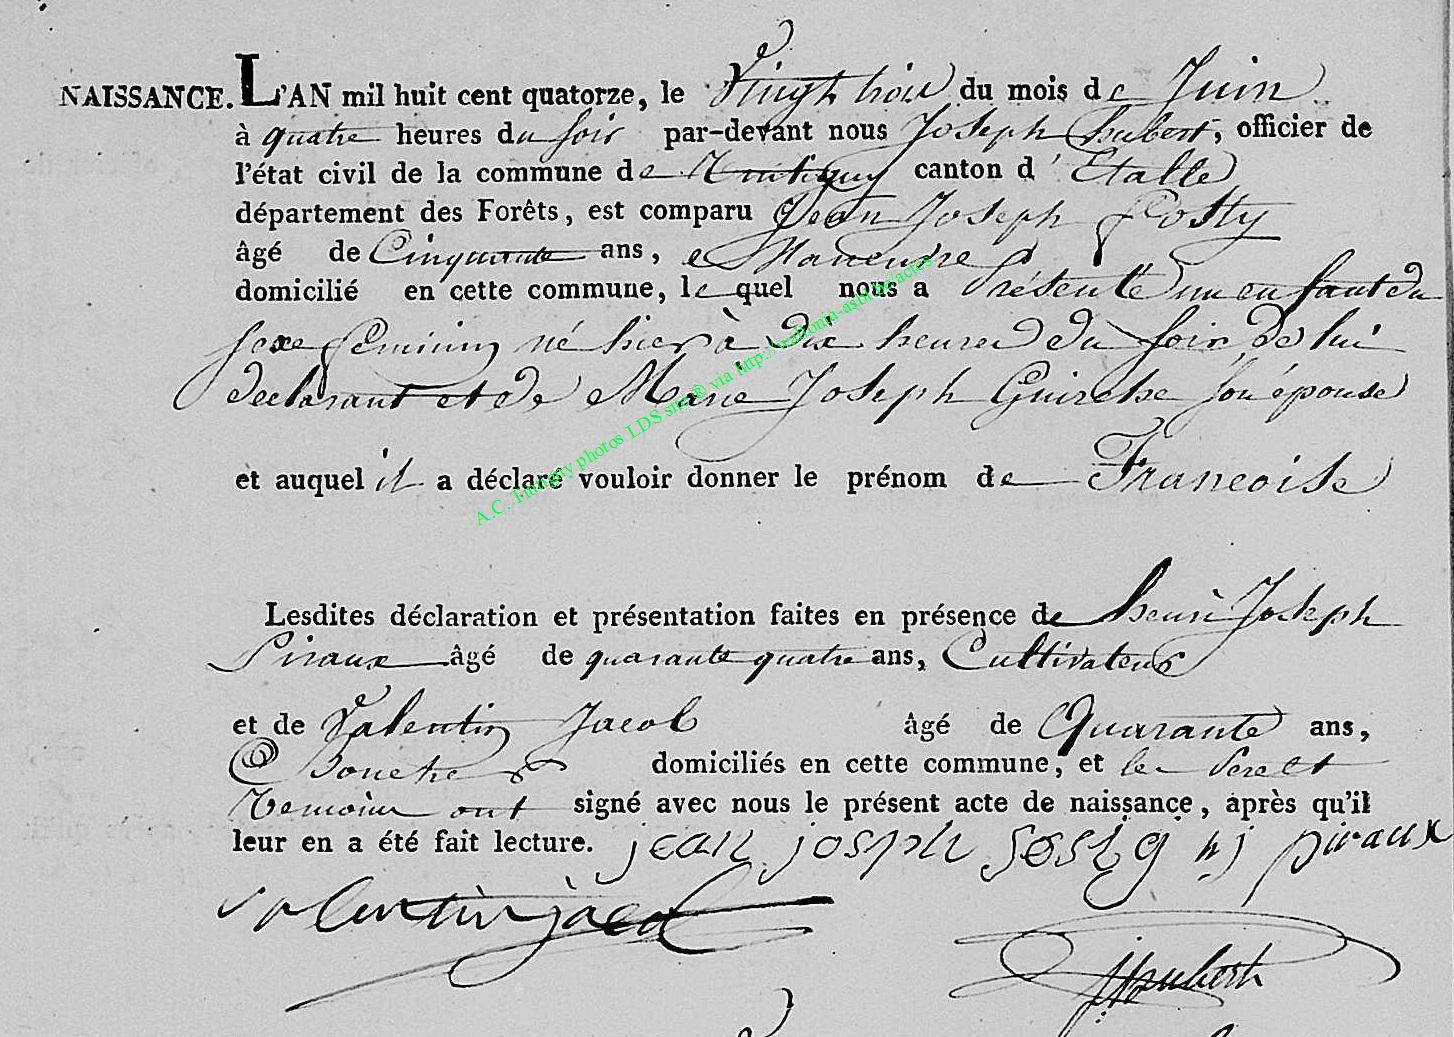 NAISSANCE. L'AN mil huit cent quatorze, le Vingt trois du mois de Juin
à quatre heures du soir par-devant nous Joseph hubert, officier de
l'état civil de la commune de Tintigny canton d'Etalle
département des Forêts, est comparu Jean Joseph
âgé de Cinquante ans, Manoeuvre
domicilié en cette commune, lequel nous a Présenté un enfant du
sexe feminin né hier à dix heures du soir, de lui
declarant et de Marie Joseph son épouse
et auquel il a déclaré vouloir donner le prénom de Francoise
Lesdites déclaration et présentation faites en présence de henri Joseph
Piraux âgé de quarante quatre ans, Cultivateur
et de Valentin Jacob âgé de Quarante ans,
domiciliés en cette commune, et les Pere et
Temoins ont signé avec nous le présent acte de naissance, après qu'il
leur en a été fait lecture. jean joseph hj piraux
valentin jacob
JHubert
A.C. Tintigny photos LDS snr® via http://wallonia-asbl.be/actes